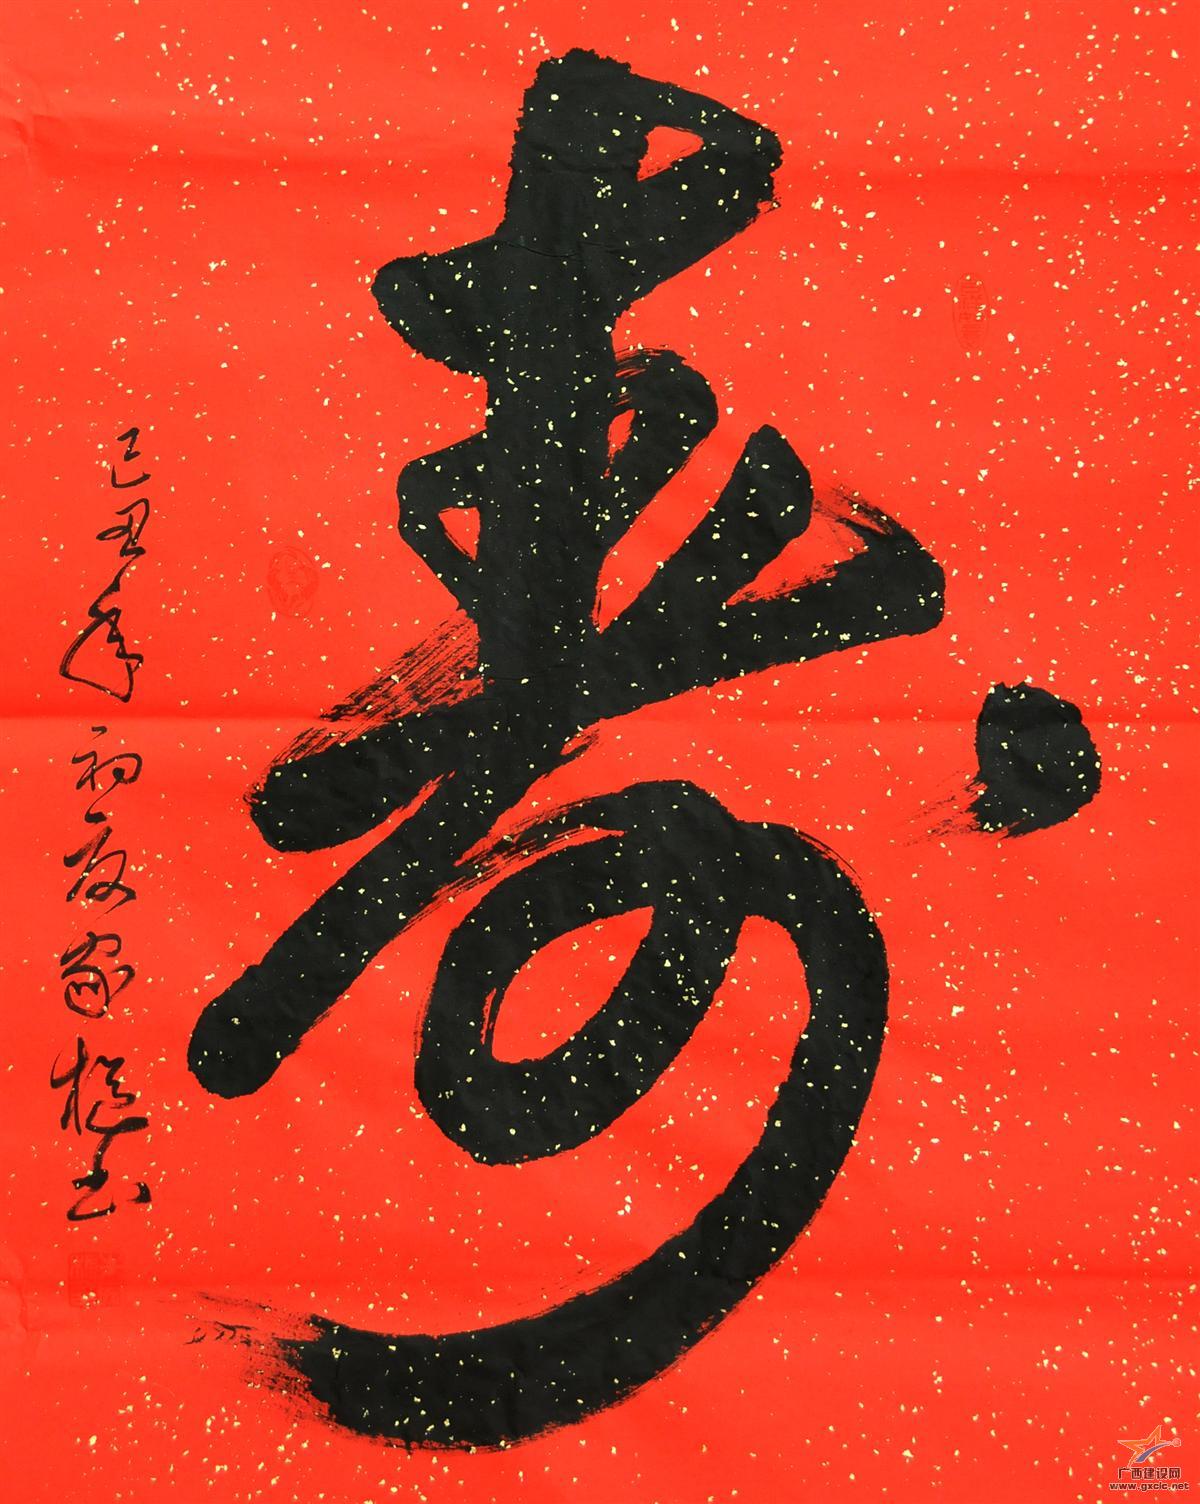 寿
己丑年初夏家极书
广西建设网
www.gxcic.net